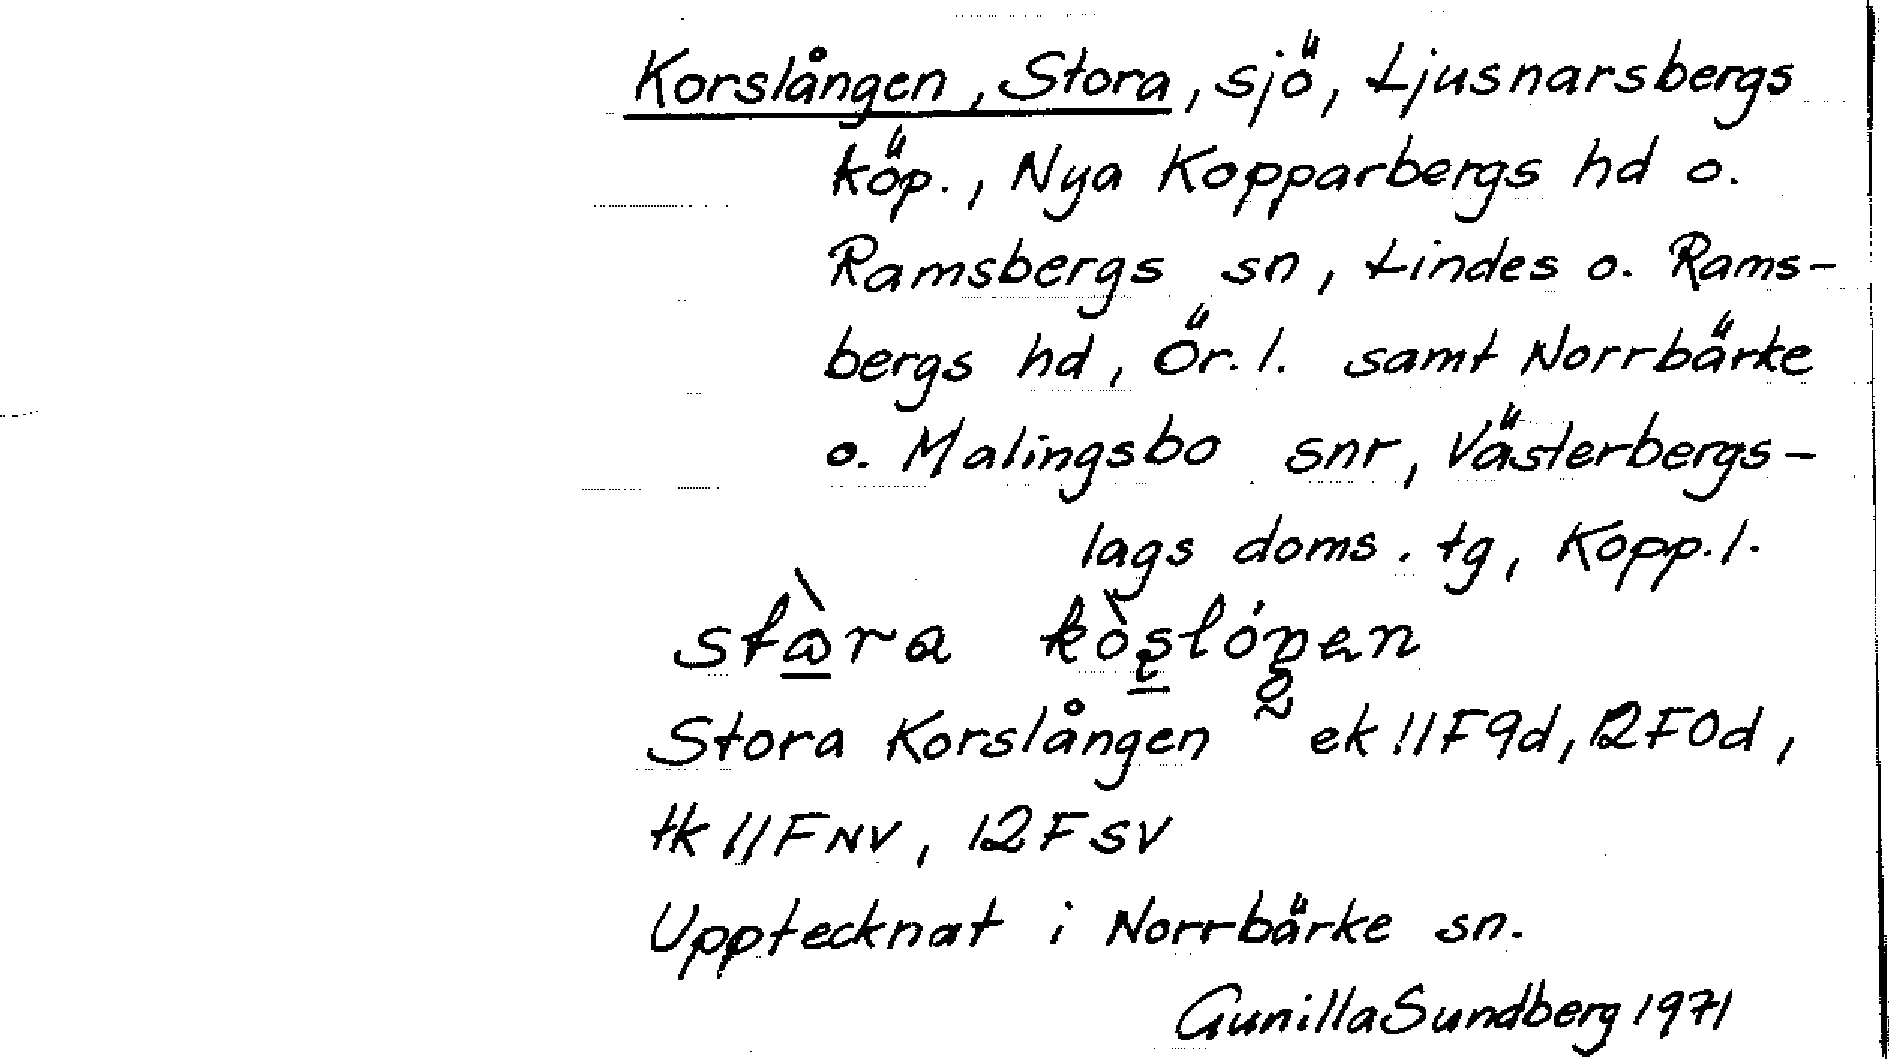 Korslången, Stora, sjö, Ljusnarsbergs
köp., Nya Kopparbergs hd o.
Ramsbergs sn, Lindes o. Rams-
bergs hd, Ör. l. samt Norrbärke
o. Malingsbo snr, Västerbergs-
lags doms. tg, Kopp. l.
Stora Korslången ek 11F9d, 12F0d,
tk 11F NV, 12F SV
Upptecknat i Norrbärke sn.
Gunilla Sundberg 1971